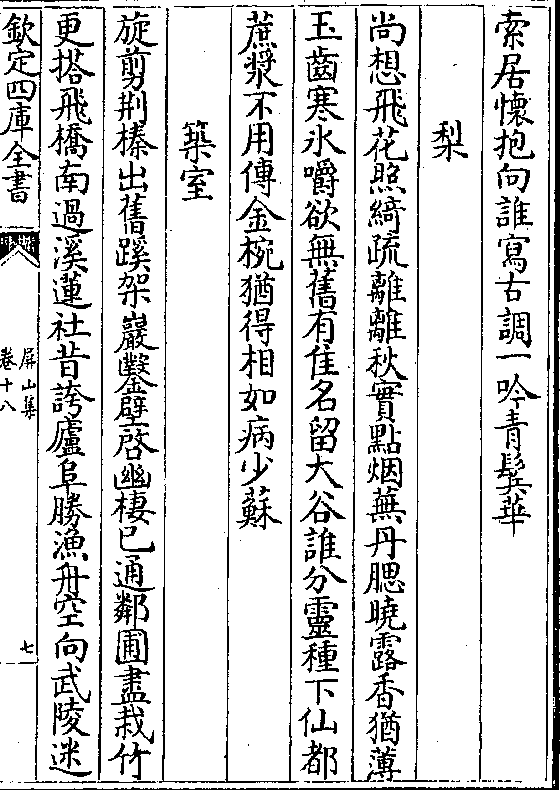 索居懷抱向誰寫古調一吟青鬓華
梨
尚想飛花照綺疏離離秋實點烟蕪丹腮曉露香猶薄
玉齒寒氷嚼欲無舊有隹名留大谷誰分靈種下仙都
蔗漿不用傳金椀猶得相如病少蘇
築室
旋剪荆榛出舊蹊架巖鑿壁啓幽棲已通鄰圃盡栽竹
更搭飛橋南過溪蓮社昔誇廬阜勝漁舟空向武陵迷
欽定四庫全書
屏山集
卷十八
七